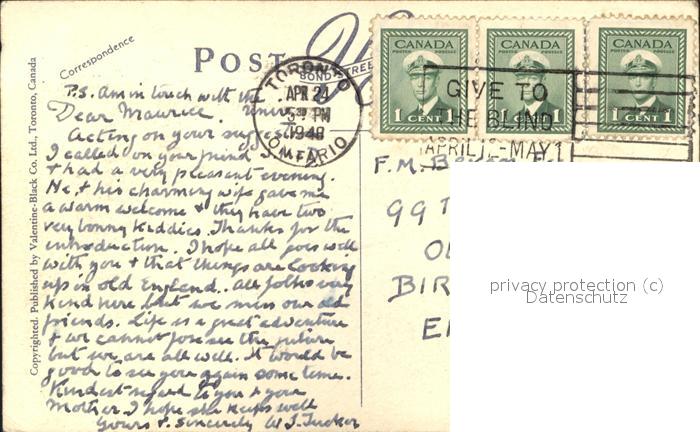 Correspondence
POST
CANADA
CANADA
CANADA
1 CENT 1
1 1
1 CENT 1
TORONTO
APR 24
PM
1948
ONTARIO
GIVE TO
THE BLIND
APRIL 12 - MAY 1
P.S. Am in touch with the
Dear Maurice,
Acting on your
I called on your friend
& had a very pleasant evening.
He, & his charming wife gave me
a warm welcome & they have two
very bonny kiddies. Thanks for the
introduction. I hope all goes well
with you & that things are looking
up in old England. All folks very
kind here but we miss our old
friends. Life is a great adventure
& we cannot foresee the future
but we are all well. It would be
good to see you again some time.
Kindest regard to you & your
Mother. I hope she keeps well
Yours v. sincerely W J Tucker
F. M.
99
OL
BIR
E
Copyrighted. Published by Valentine-Black Co. Ltd., Toronto, Canada
privacy protection (c)
Datenschutz